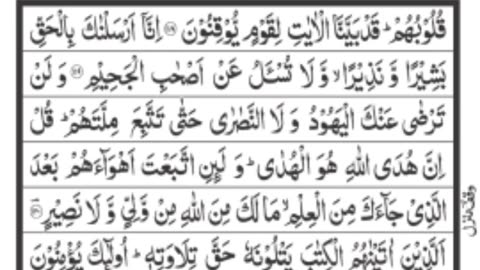 قُلُوْبُهُمْ ؕ قَدْ بَيَّنَّا الْاٰيٰتِ لِقَوْمٍ يُّوْقِنُوْنَ ﴿۱۱۸﴾ اِنَّاۤ اَرْسَلْنٰكَ بِالْحَقِّ
بَشِيْرًا وَّ نَذِيْرًا ۙ وَّ لَا تُسْـَٔلُ عَنْ اَصْحٰبِ الْجَحِيْمِ ﴿۱۱۹﴾ وَ لَنْ
تَرْضٰى عَنْكَ الْيَهُوْدُ وَ لَا النَّصٰرٰى حَتّٰى تَتَّبِعَ مِلَّتَهُمْ ؕ قُلْ
اِنَّ هُدَى اللّٰهِ هُوَ الْهُدٰى ؕ وَ لَىِٕنِ اتَّبَعْتَ اَهْوَآءَهُمْ بَعْدَ
الَّذِيْ جَآءَكَ مِنَ الْعِلْمِ ۙ مَا لَكَ مِنَ اللّٰهِ مِنْ وَّلِيٍّ وَّ لَا نَصِيْرٍ ﴿۱۲۰﴾
اَلَّذِيْنَ اٰتَيْنٰهُمُ الْكِتٰبَ يَتْلُوْنَهٗ حَقَّ تِلَاوَتِهٖ ؕ اُولٰٓىِٕكَ يُؤْمِنُوْنَ